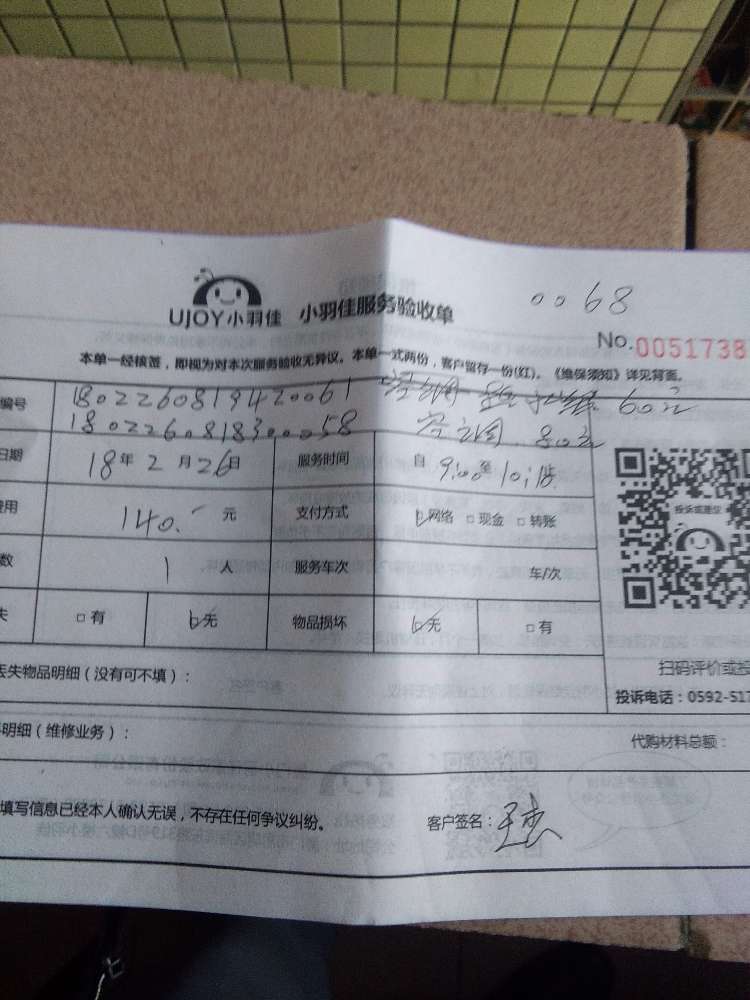 UJOY小羽佳 小羽佳服务验收单
0068
No.0051738
本单一经核签，即视为对本次服务验收无异议。本单一式两份，客户留存一份(红)。《维保须知》详见背面。
编号 1802260819420061 60元
1802260818300058 空调 80元
日期 18年2月26日 服务时间 自9:00至10:18止
费用 140.- 元 支付方式 网络 □现金 □转账
数 1 人 服务车次 车/次
失 □有 无 物品损坏 无 □有
投诉或建议
扫码评价或投
丢失物品明细（没有可不填）：
投诉电话：0592-517
明细（维修业务）：
代购材料总额：
填写信息已经本人确认无误，不存在任何争议纠纷。
客户签名：